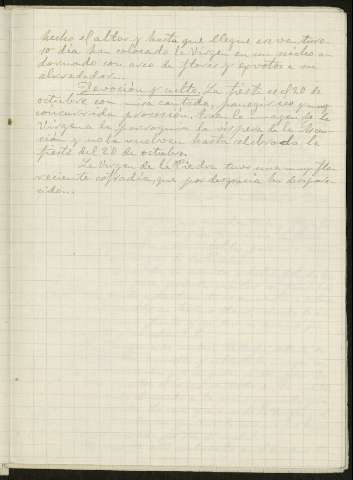 hecho el altar y hasta que llegue en venturo-
so día han colocado la Virgen en un nicho a-
dornado con arco de flores y exvotos a su
alrededor.
Devoción y culto. La fiesta es el 20 de
octubre con misa cantada, panegírico y muy
concurrida procesión. Bajan la imagen de la
Virgen a la parroquia la víspera de la Ascen-
sión y no la vuelven hasta celebrada la
fiesta del 20 de octubre.
La Virgen de la Piedra tuvo una muy flo-
reciente cofradía, que por desgracia ha desapare-
cido.